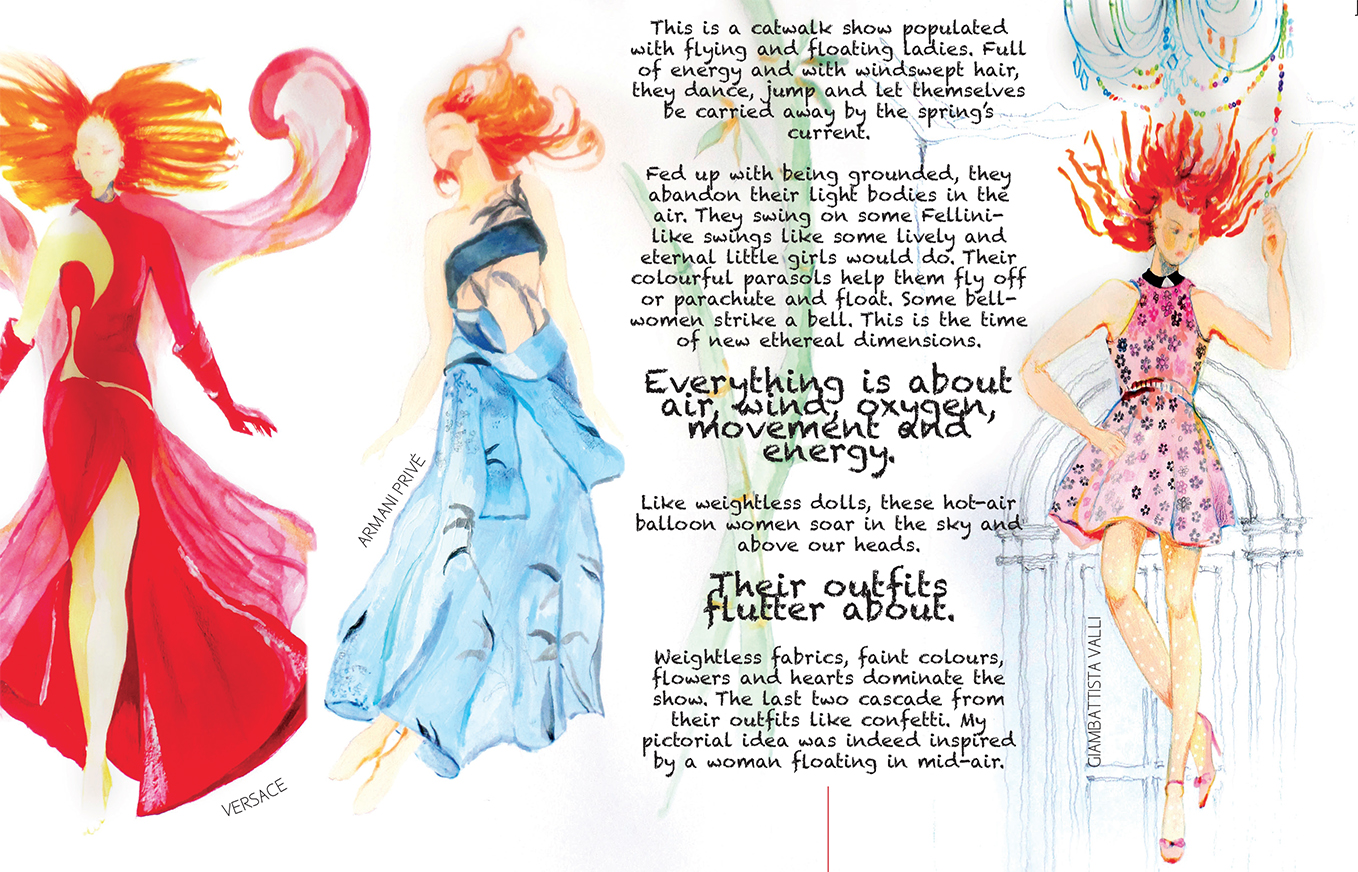 This is a catwalk show populated
with flying and floating ladies. Full
of energy and with windswept hair,
they dance, jump and let themselves
be carried away by the spring's
current.
Fed up with being grounded, they
abandon their light bodies in the
air. They swing on some Fellini-
like swings like some lively and
eternal little girls would do. Their
colourful parasols help them fly off
or parachute and float. Some bell-
women strike a bell. This is the time
of new ethereal dimensions.
Everything is about
air, wind, oxygen,
movement and
energy.
Like weightless dolls, these hot-air
balloon women soar in the sky and
above our heads.
Their outfits
flutter about.
Weightless fabrics, faint colours,
flowers and hearts dominate the
show. The last two cascade from
their outfits like confetti. My
pictorial idea was indeed inspired
by a woman floating in mid-air.
VERSACE
ARMANI PRIVÉ
GIAMBATTISTA VALLI